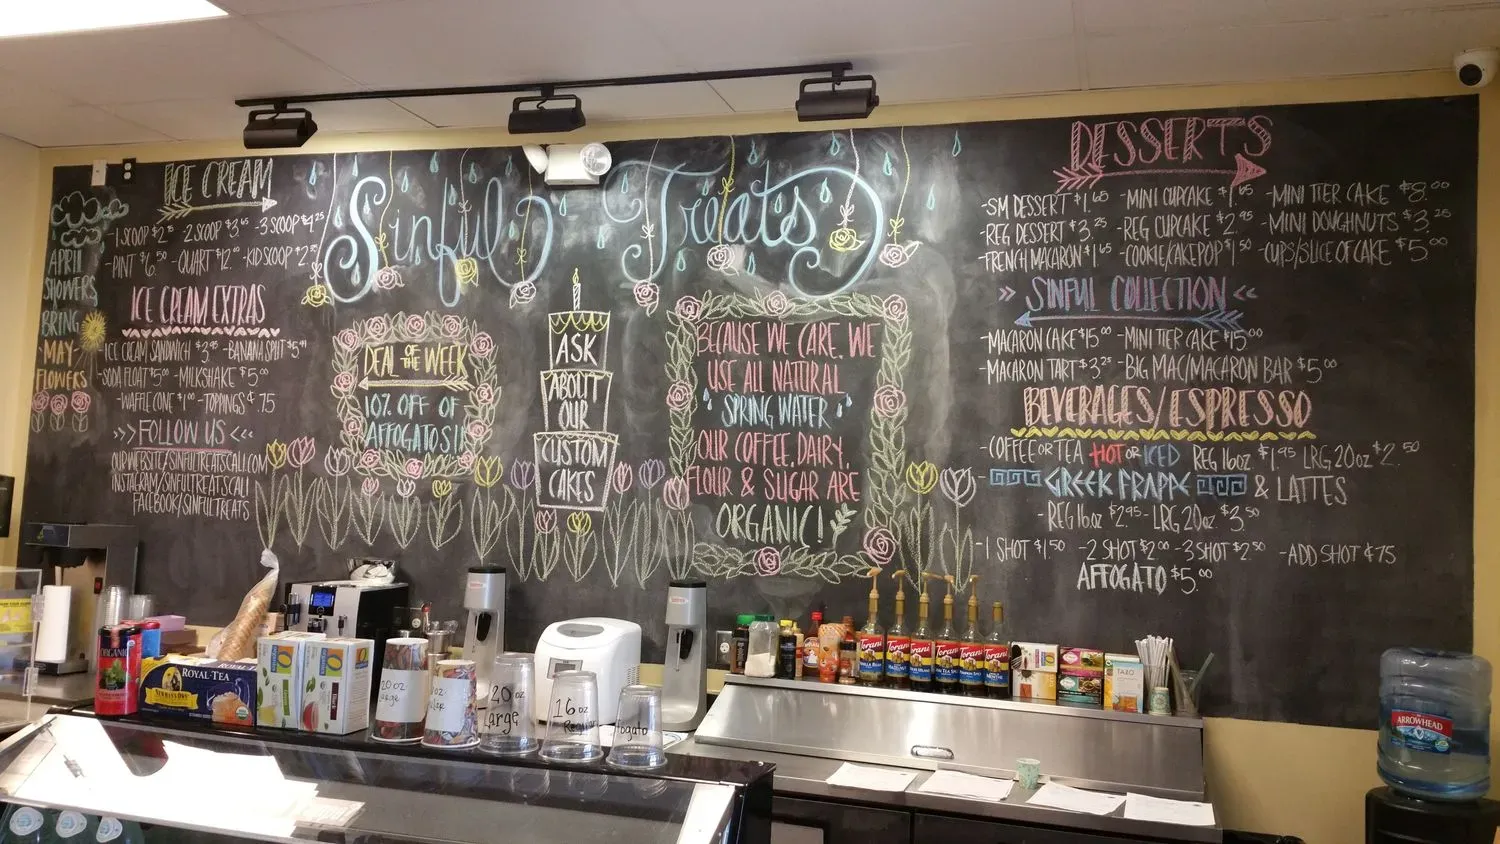 Sinful Treats
APRIL
SHOWERS
BRING
MAY
FLOWERS
ICE CREAM
-2 SCOOP $3.65 -3 SCOOP $4.25
-PINT $6.50 -QUART $12.00 -KID SCOOP
ICE CREAM EXTRAS
ICE CREAM SANDWICH $3.95 -BANANA SPLIT
-SODA FLOAT $5.00 -MILKSHAKE $5.00
-WAFFLE CONE $1.00 -TOPPINGS ¢.75
>>>FOLLOW US<<<
OUR WEBSITE/SINFULTREATSCALI.COM
INSTAGRAM/SINFULTREATSCALI
FACEBOOK/SINFULTREATS
DEAL OF THE WEEK
10% OFF OF
AFFOGATOS!!
ASK
ABOUT
OUR
CUSTOM
CAKES
BECAUSE WE CARE, WE
USE ALL NATURAL
SPRING WATER
OUR COFFEE, DAIRY,
FLOUR & SUGAR ARE
ORGANIC!
DESSERTS
-SM DESSERT $1.65 -MINI CUPCAKE $1.65 -MINI TIER CAKE $8.00
-REG DESSERT $3.25 -REG CUPCAKE $2.95 -MINI DOUGHNUTS $3.25
-FRENCH MACARON $1.65 -COOKIE/CAKEPOP $1.50 -CUPS/SLICE OF CAKE $5.00
>> SINFUL COLLECTION <<
-MACARON CAKE $15.00 -MINI TIER CAKE $15.00
-MACARON TART $3.25 -BIG MAC/MACARON BAR $5.00
BEVERAGES/ESPRESSO
-COFFEE OR TEA HOT OR ICED REG 16oz $1.95 LRG 20oz $2.50
GREEK FRAPPE & LATTES
-REG 16oz $2.95 -LRG 20oz $3.50
-1 SHOT $1.50 -2 SHOT $2.00 -3 SHOT $2.50 -ADD SHOT ¢75
AFFOGATO $5.00
ORGANIC
NEWMAN'S OWN
ROYAL TEA
20 oz
Large
20 oz
Large
16 oz
Regular
Torani
Torani
Torani
Torani
Torani
TAZO
ARROWHEAD